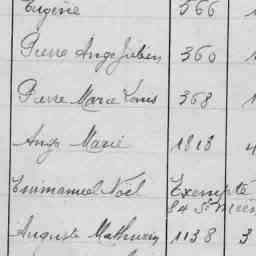 Eugène 366
Pierre Ange Julien 360
Pierre Marie Louis 368
Ange Marie 1813 4
Emmanuel Noël Exempté
84 St
Auguste Mathurin 1138 3